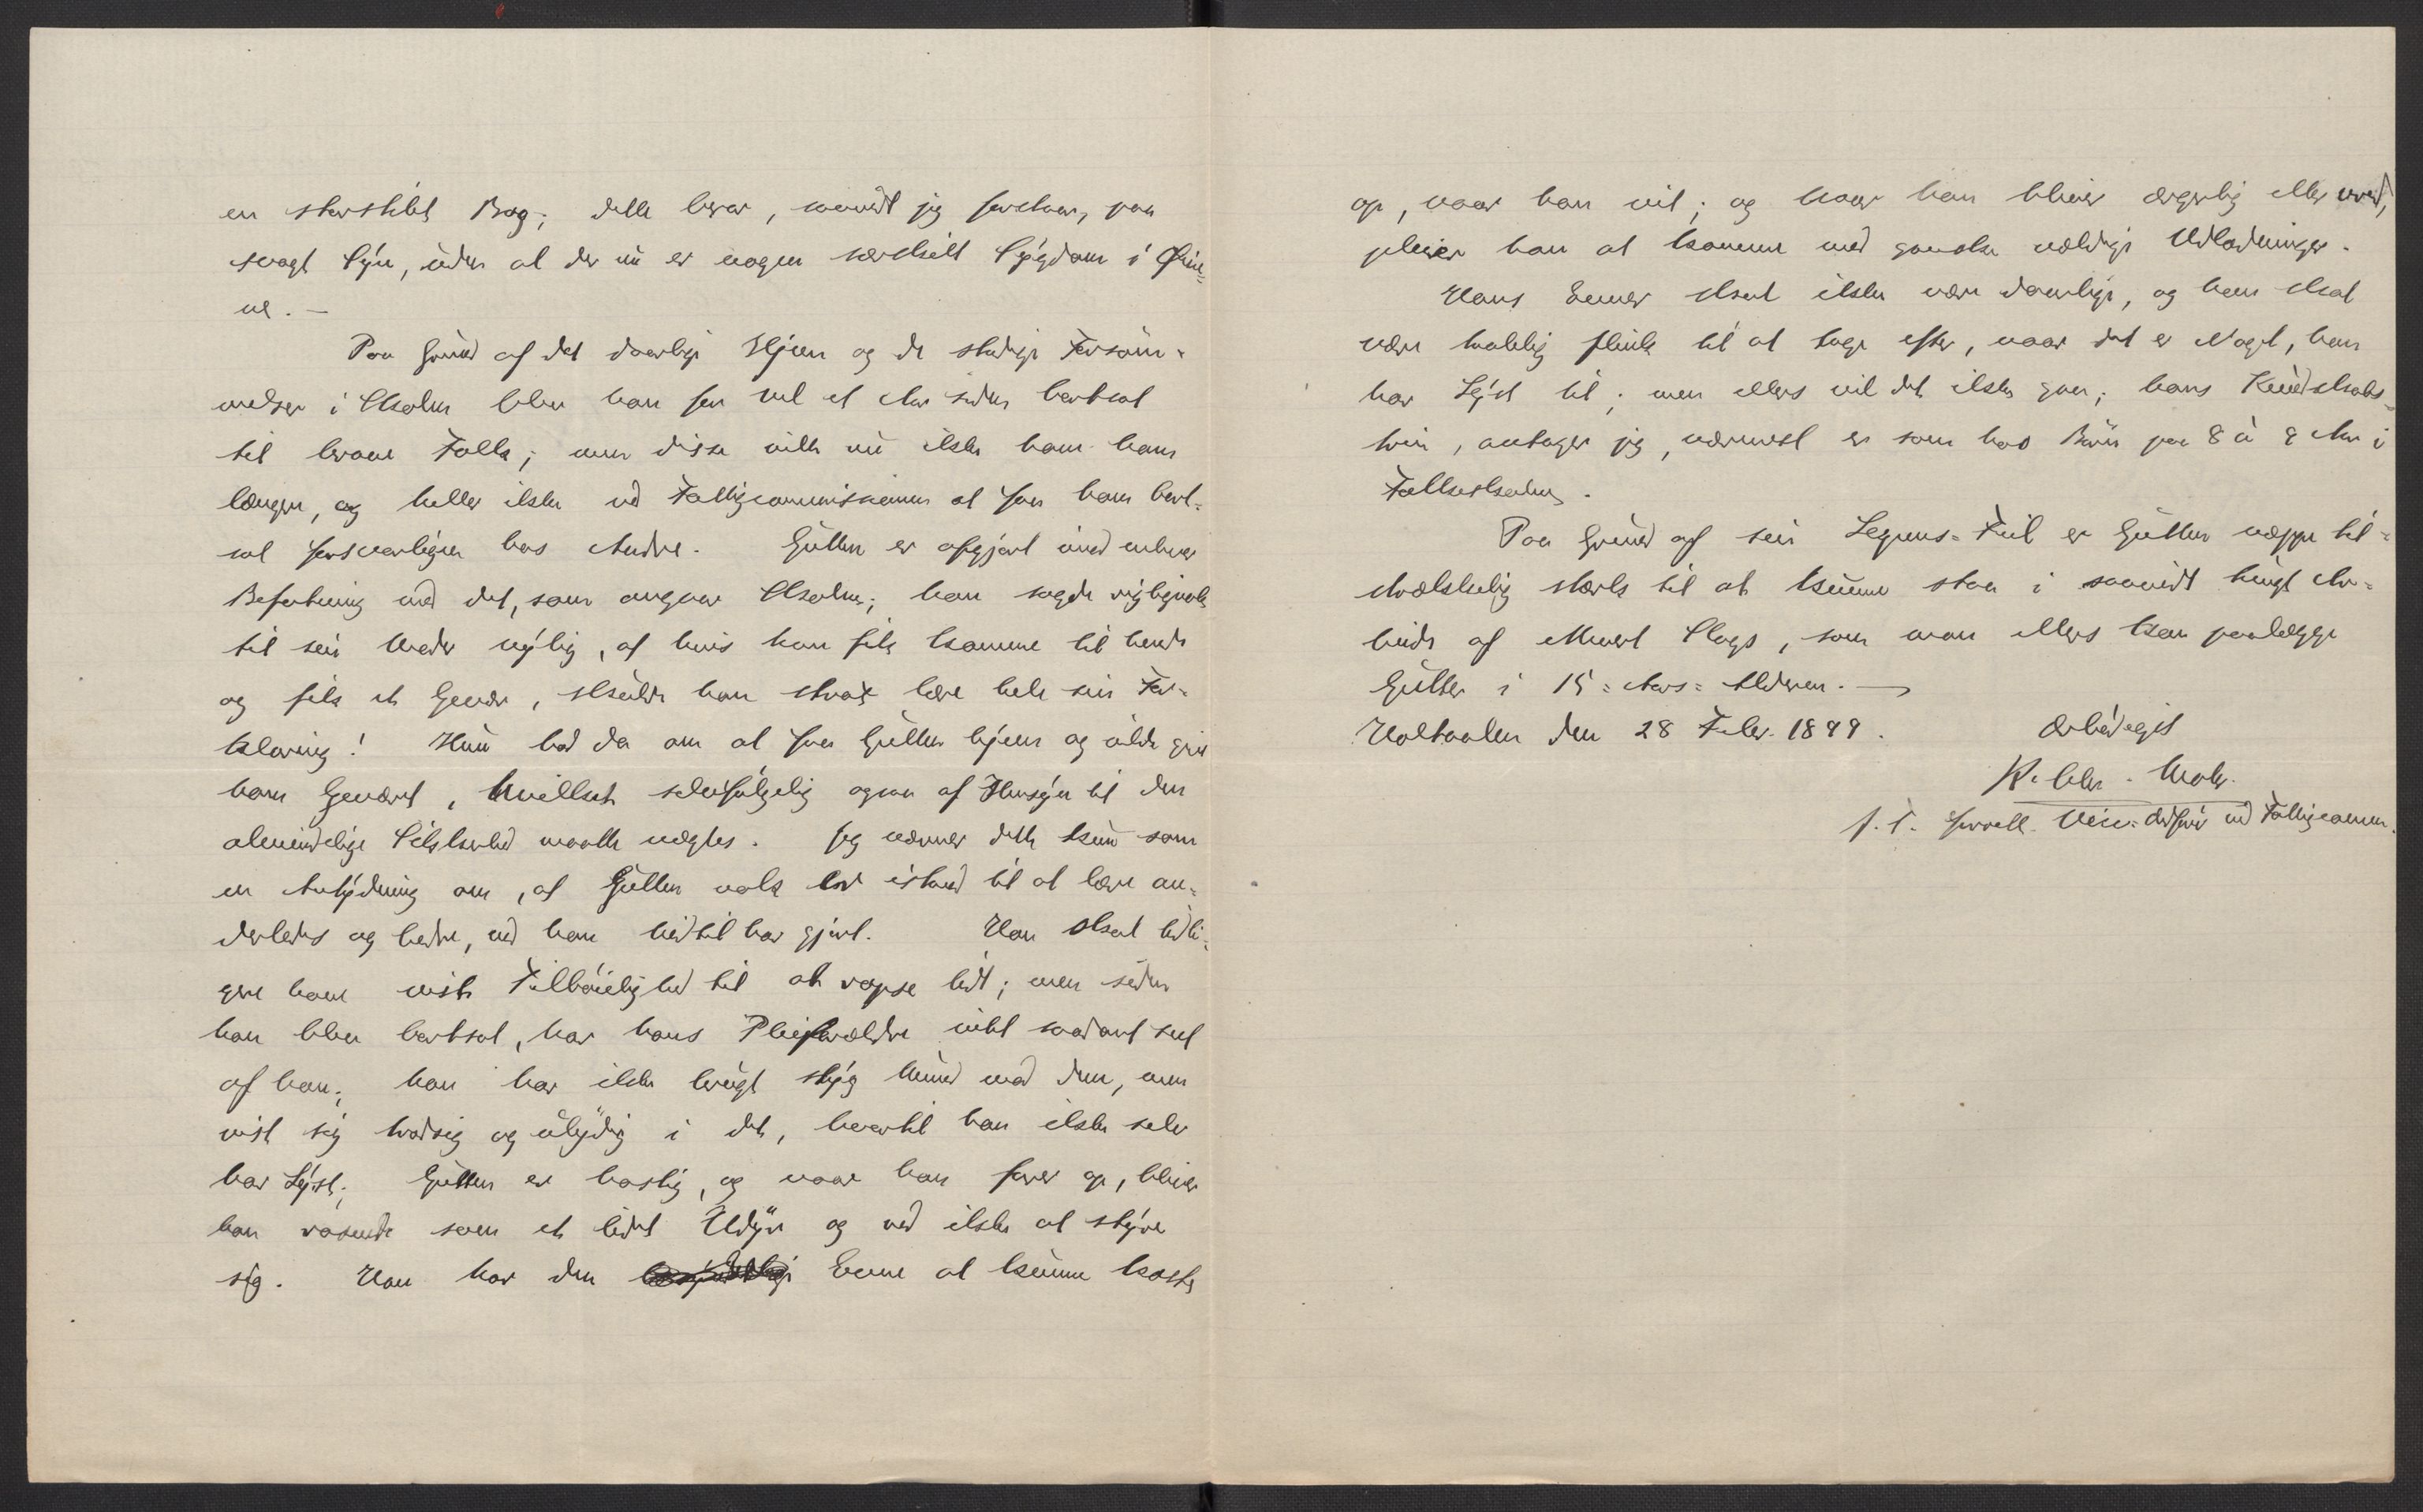 en storstilet Bog; dette beror, saavidt jeg forstaar, paa
svagt Syn, uden at der nu er nogen særskilt Sygdom i Øine-
ne. —
Paa Grund af det daarlige Hjem og de stadige Forsøm-
melser i Skolen blev han for vel et Aar siden bortsat
til brave Folk; men disse ville nu ikke have ham
længer, og heller ikke ved Fattigcommissionen at faa ham bort-
sat forsvarligen hos Andre. Gutten er afgjort imod enhver
Befatning med det, som angaar Skolen; han sagde rigtignok
til sin Moder nylig, at hvis han fik komme til hende
og fik et Gevær, skulde han strax lære hele sin For-
klaring! Hun bad da om at faa Gutten hjem og vilde give
ham Geværet, hvilket selvfølgelig ogsaa af Hensyn til den
almindelige Sikkerhed maatte negtes. Jeg nævner dette kun som
en Antydning om, at Gutten nok er istand til at lære an-
derledes og bedre, end han hidtil har gjort. Han skal tidli-
gere have vist Tilbøielighed til at rapse lidt; men siden
han blev bortsat, har hans Pleieforældre intet saadant seet
af ham; han har ikke brugt styg Mund mod dem, men
vist sig trodsig og ulydig i det, hvortil han ikke selv
har Lyst. Gutten er hastig, og naar han farer op, bliver
han rasende som et lidet Udyr og ved ikke at styre
sig. Han har den Evne at kunne kaste
op, naar han vil; og naar han bliver ærgerlig eller vred,
pleier han at komme med ganske vældige Udladninger.
Hans Evner skal ikke være daarlige, og han skal
være trolig flink til at tage efter, naar det er Noget, han
har Lyst til; men ellers vil det ikke gaa; hans Kundskabs-
trin, antager jeg, nærmest er som hos Børn paa 8 à 9 Aar i
Folkeskolen.
Paa Grund af sin Legems-Feil er Gutten neppe til-
strækkelig stærk til at kunne staa i saavidt tungt Ar-
beide af ethvert Slags, som man ellers kan paalægge
Gutter i 15-Aars-Alderen. —
Holtaalen den 28 Febr. 1899.
Ærbødigst
f. T. Vice-Ordfører ved Fattigcomm.